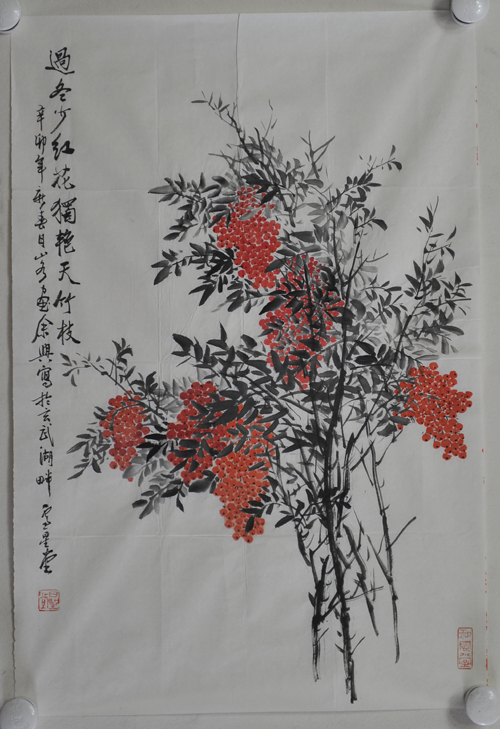 過冬少紅花獨艷天竹枝
辛卯年 月山 畫余興寫於玄武湖畔 星堂